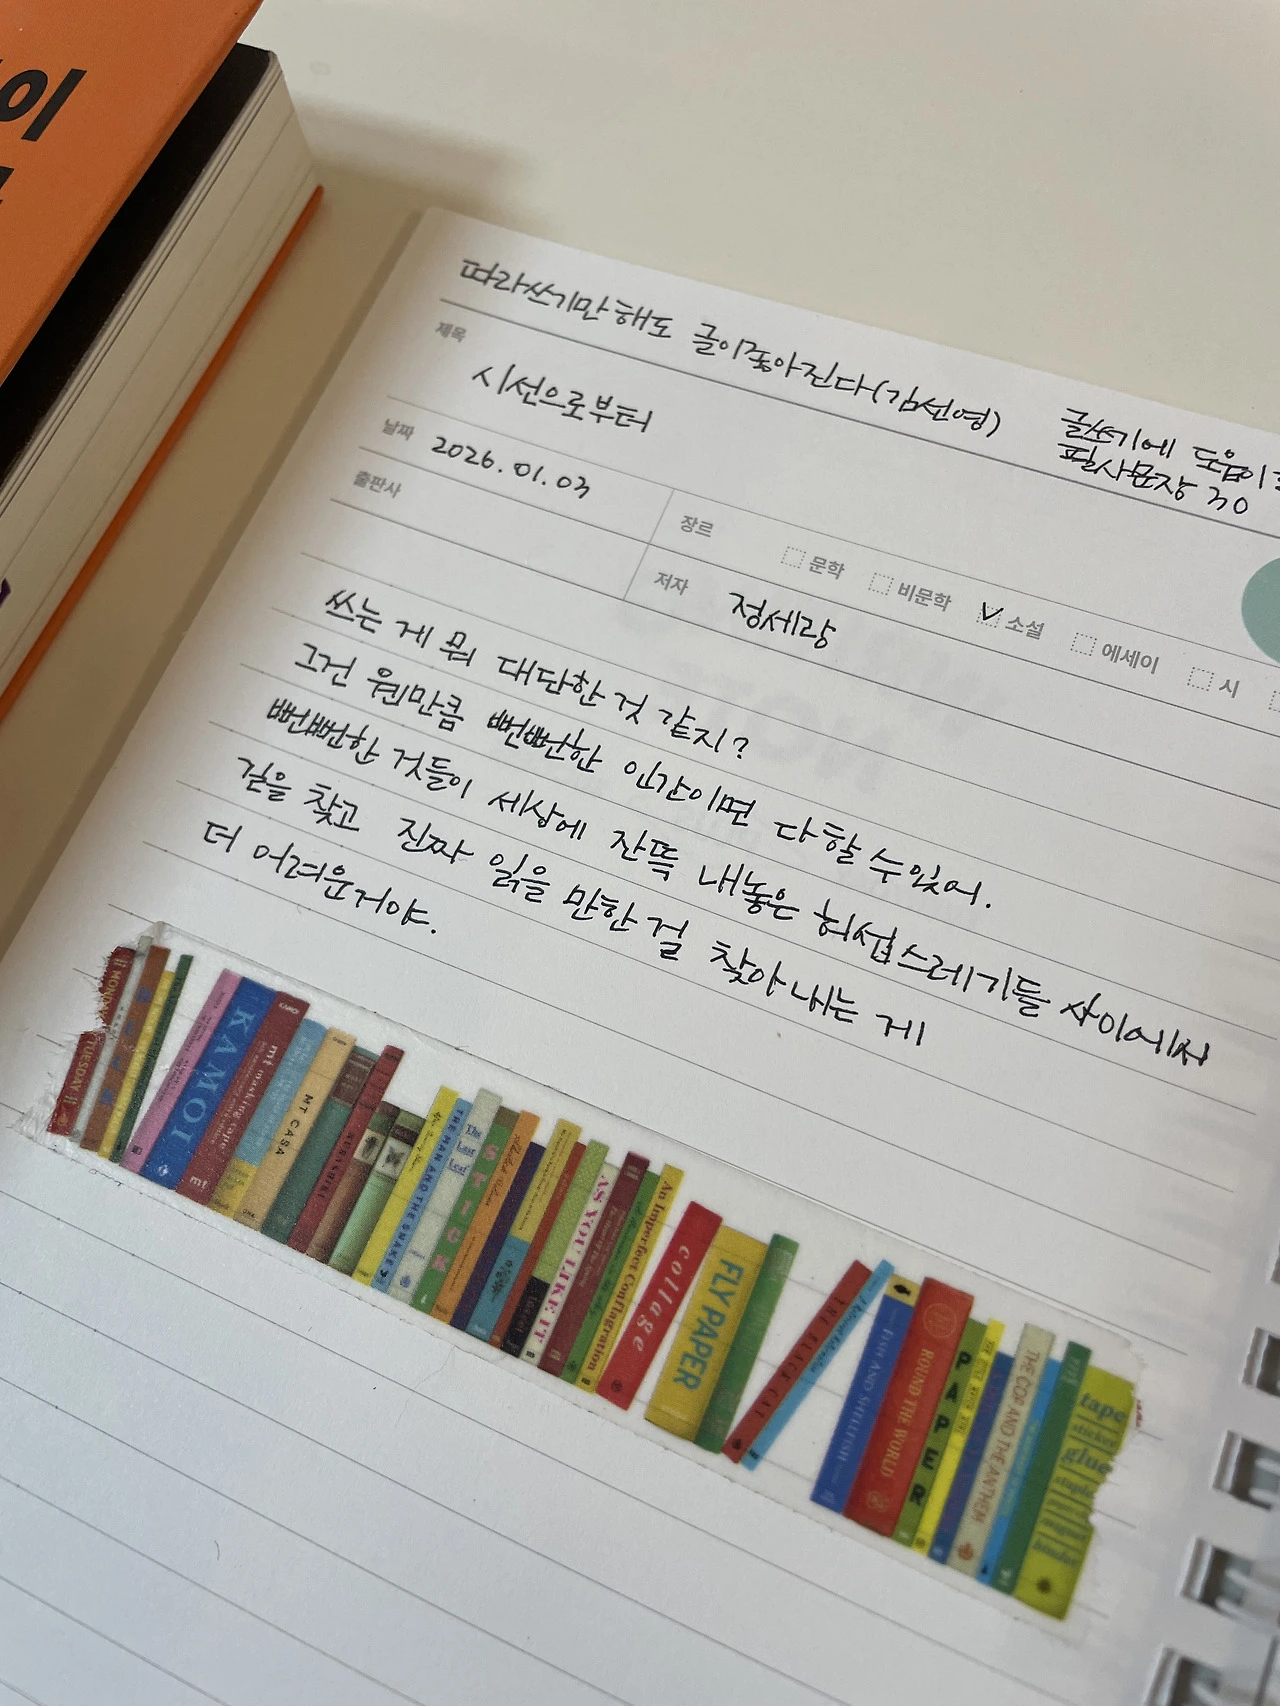 이
따라쓰기만 해도 글이 좋아진다(김선영)
글쓰기에 도움이
필사문장 30
제목
시선으로부터
날짜 2026.01.03
장르 문학 비문학 소설 에세이 시
출판사
저자 정세랑
쓰는 게 뭐 대단한 것 같지?
그건 웬만큼 뻔뻔한 인간이면 다 할 수 있어.
뻔뻔한 것들이 세상에 잔뜩 내놓은 허섭스레기들 사이에서
길을 찾고 진짜 읽을 만한 걸 찾아내는 게
더 어려운거야.
MONDAY
TUESDAY
KAMOI
KAMOI
mt masking tape
mt
MT CASA
THE MAN AND THE SNAKE
The Last Leaf
STICK
AS YOU LIKE IT
An Imperfect Conflagration
collage
FLY PAPER
THE BLACK CAT
FISH AND SHELLFISH
ROUND THE WORLD
PAPER
THE COP AND THE ANTHEM
tape
sticker
glue
staple
binder